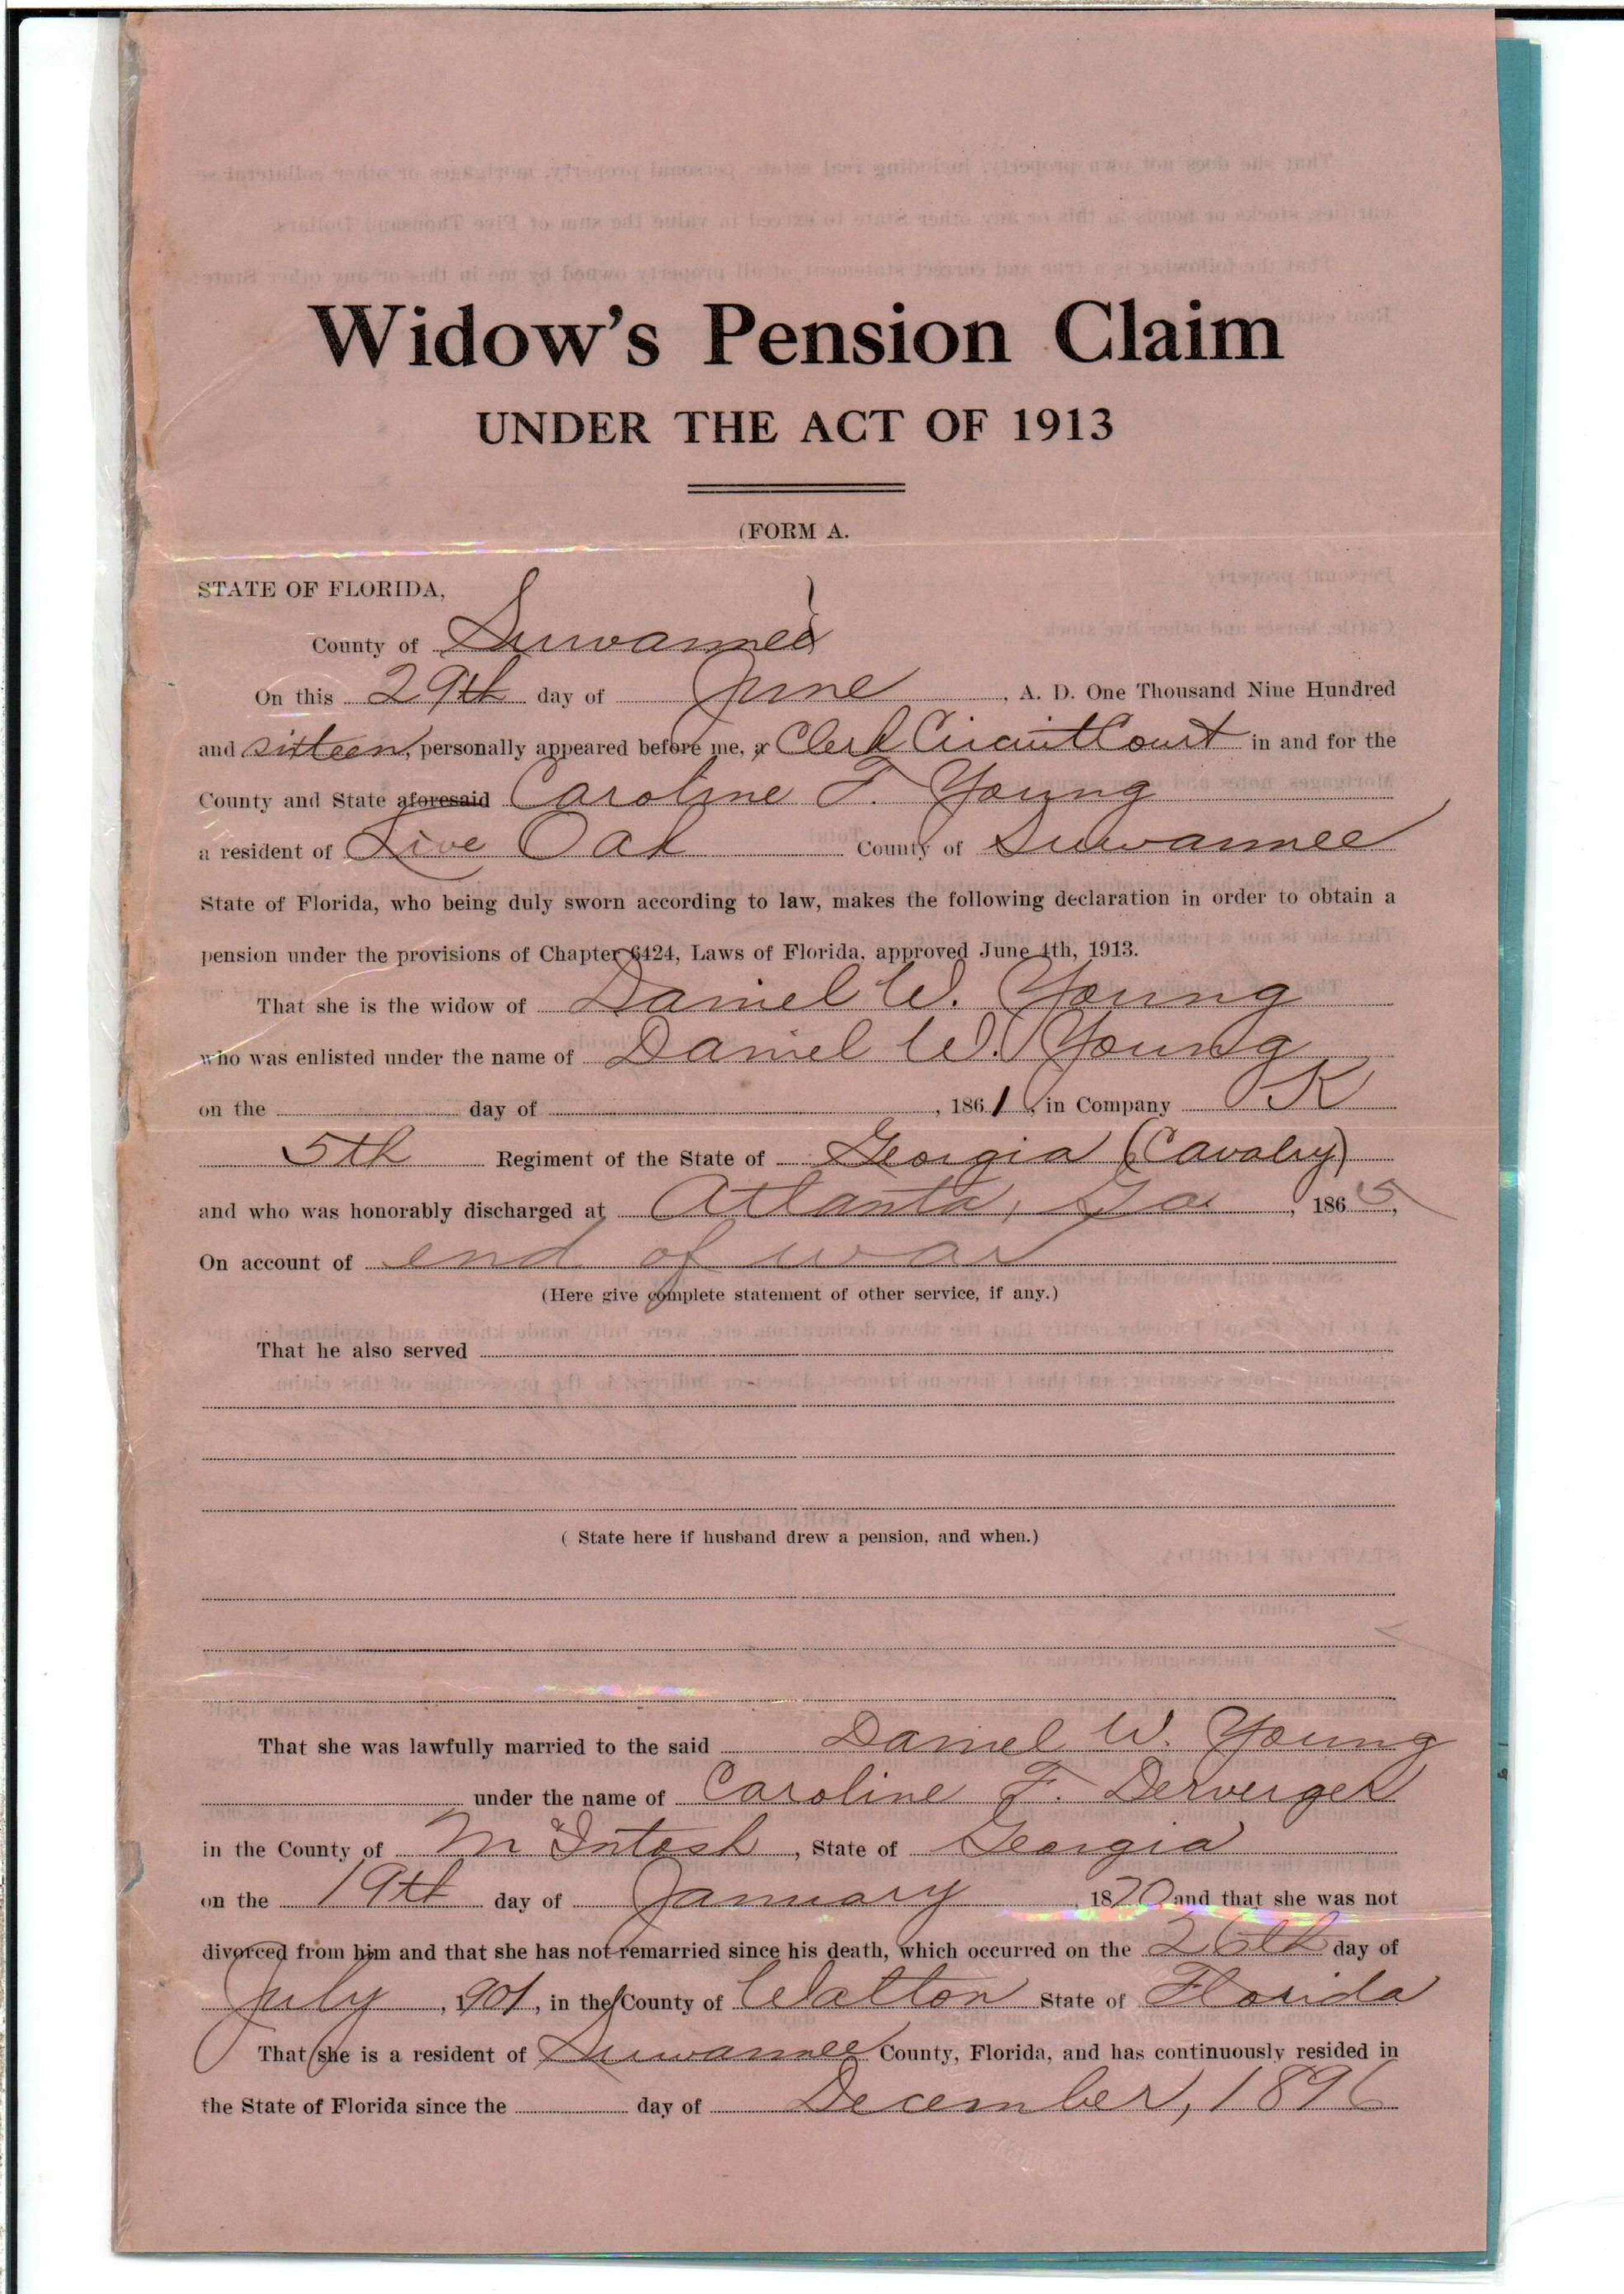 Widow's Pension Claim
UNDER THE ACT OF 1913
(FORM A.
STATE OF FLORIDA,
County of Suwannee
On this 29th day of June, A. D. One Thousand Nine Hundred
and sixteen, personally appeared before me, a Clerk Circuit Court in and for the
County and State aforesaid Caroline F. Young
a resident of Live Oak County of Suwannee
State of Florida, who being duly sworn according to law, makes the following declaration in order to obtain a
pension under the provisions of Chapter 6424, Laws of Florida, approved June 4th, 1913.
That she is the widow of Daniel W. Young
who was enlisted under the name of Daniel W. Young
on the day of , 1861, in Company K
5th Regiment of the State of Georgia (Cavalry)
and who was honorably discharged at Atlanta, Ga, 1865,
On account of end of war
(Here give complete statement of other service, if any.)
That he also served
( State here if husband drew a pension, and when.)
That she was lawfully married to the said Daniel W. Young
under the name of Caroline F.
in the County of McIntosh, State of Georgia
on the 19th day of January, 1870 and that she was not
divorced from him and that she has not remarried since his death, which occurred on the 26th day of
July, 1901, in the County of Walton State of Florida
That she is a resident of Suwannee County, Florida, and has continuously resided in
the State of Florida since the day of December, 1896